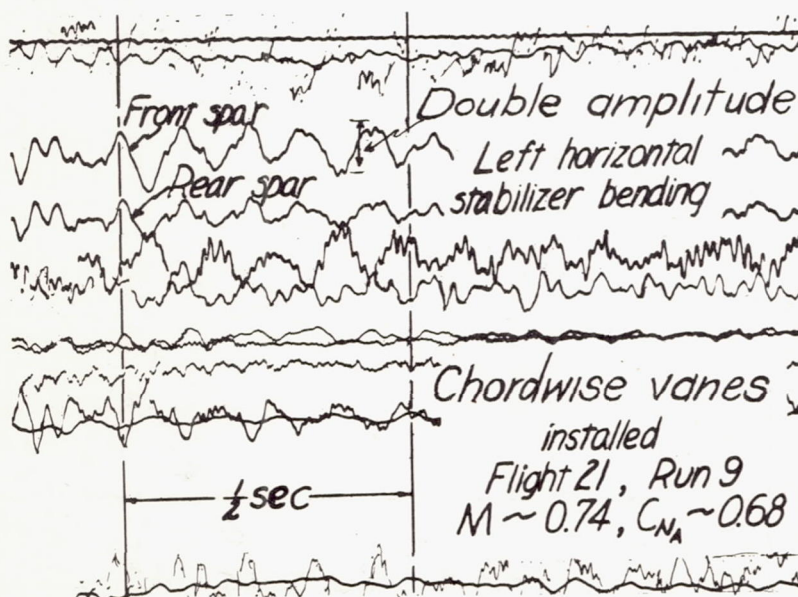 Front spar
Double amplitude
Left horizontal
stabilizer bending
Rear spar
Chordwise vanes
installed
Flight 21, Run 9
M ~ 0.74, C_NA ~ 0.68
½ sec